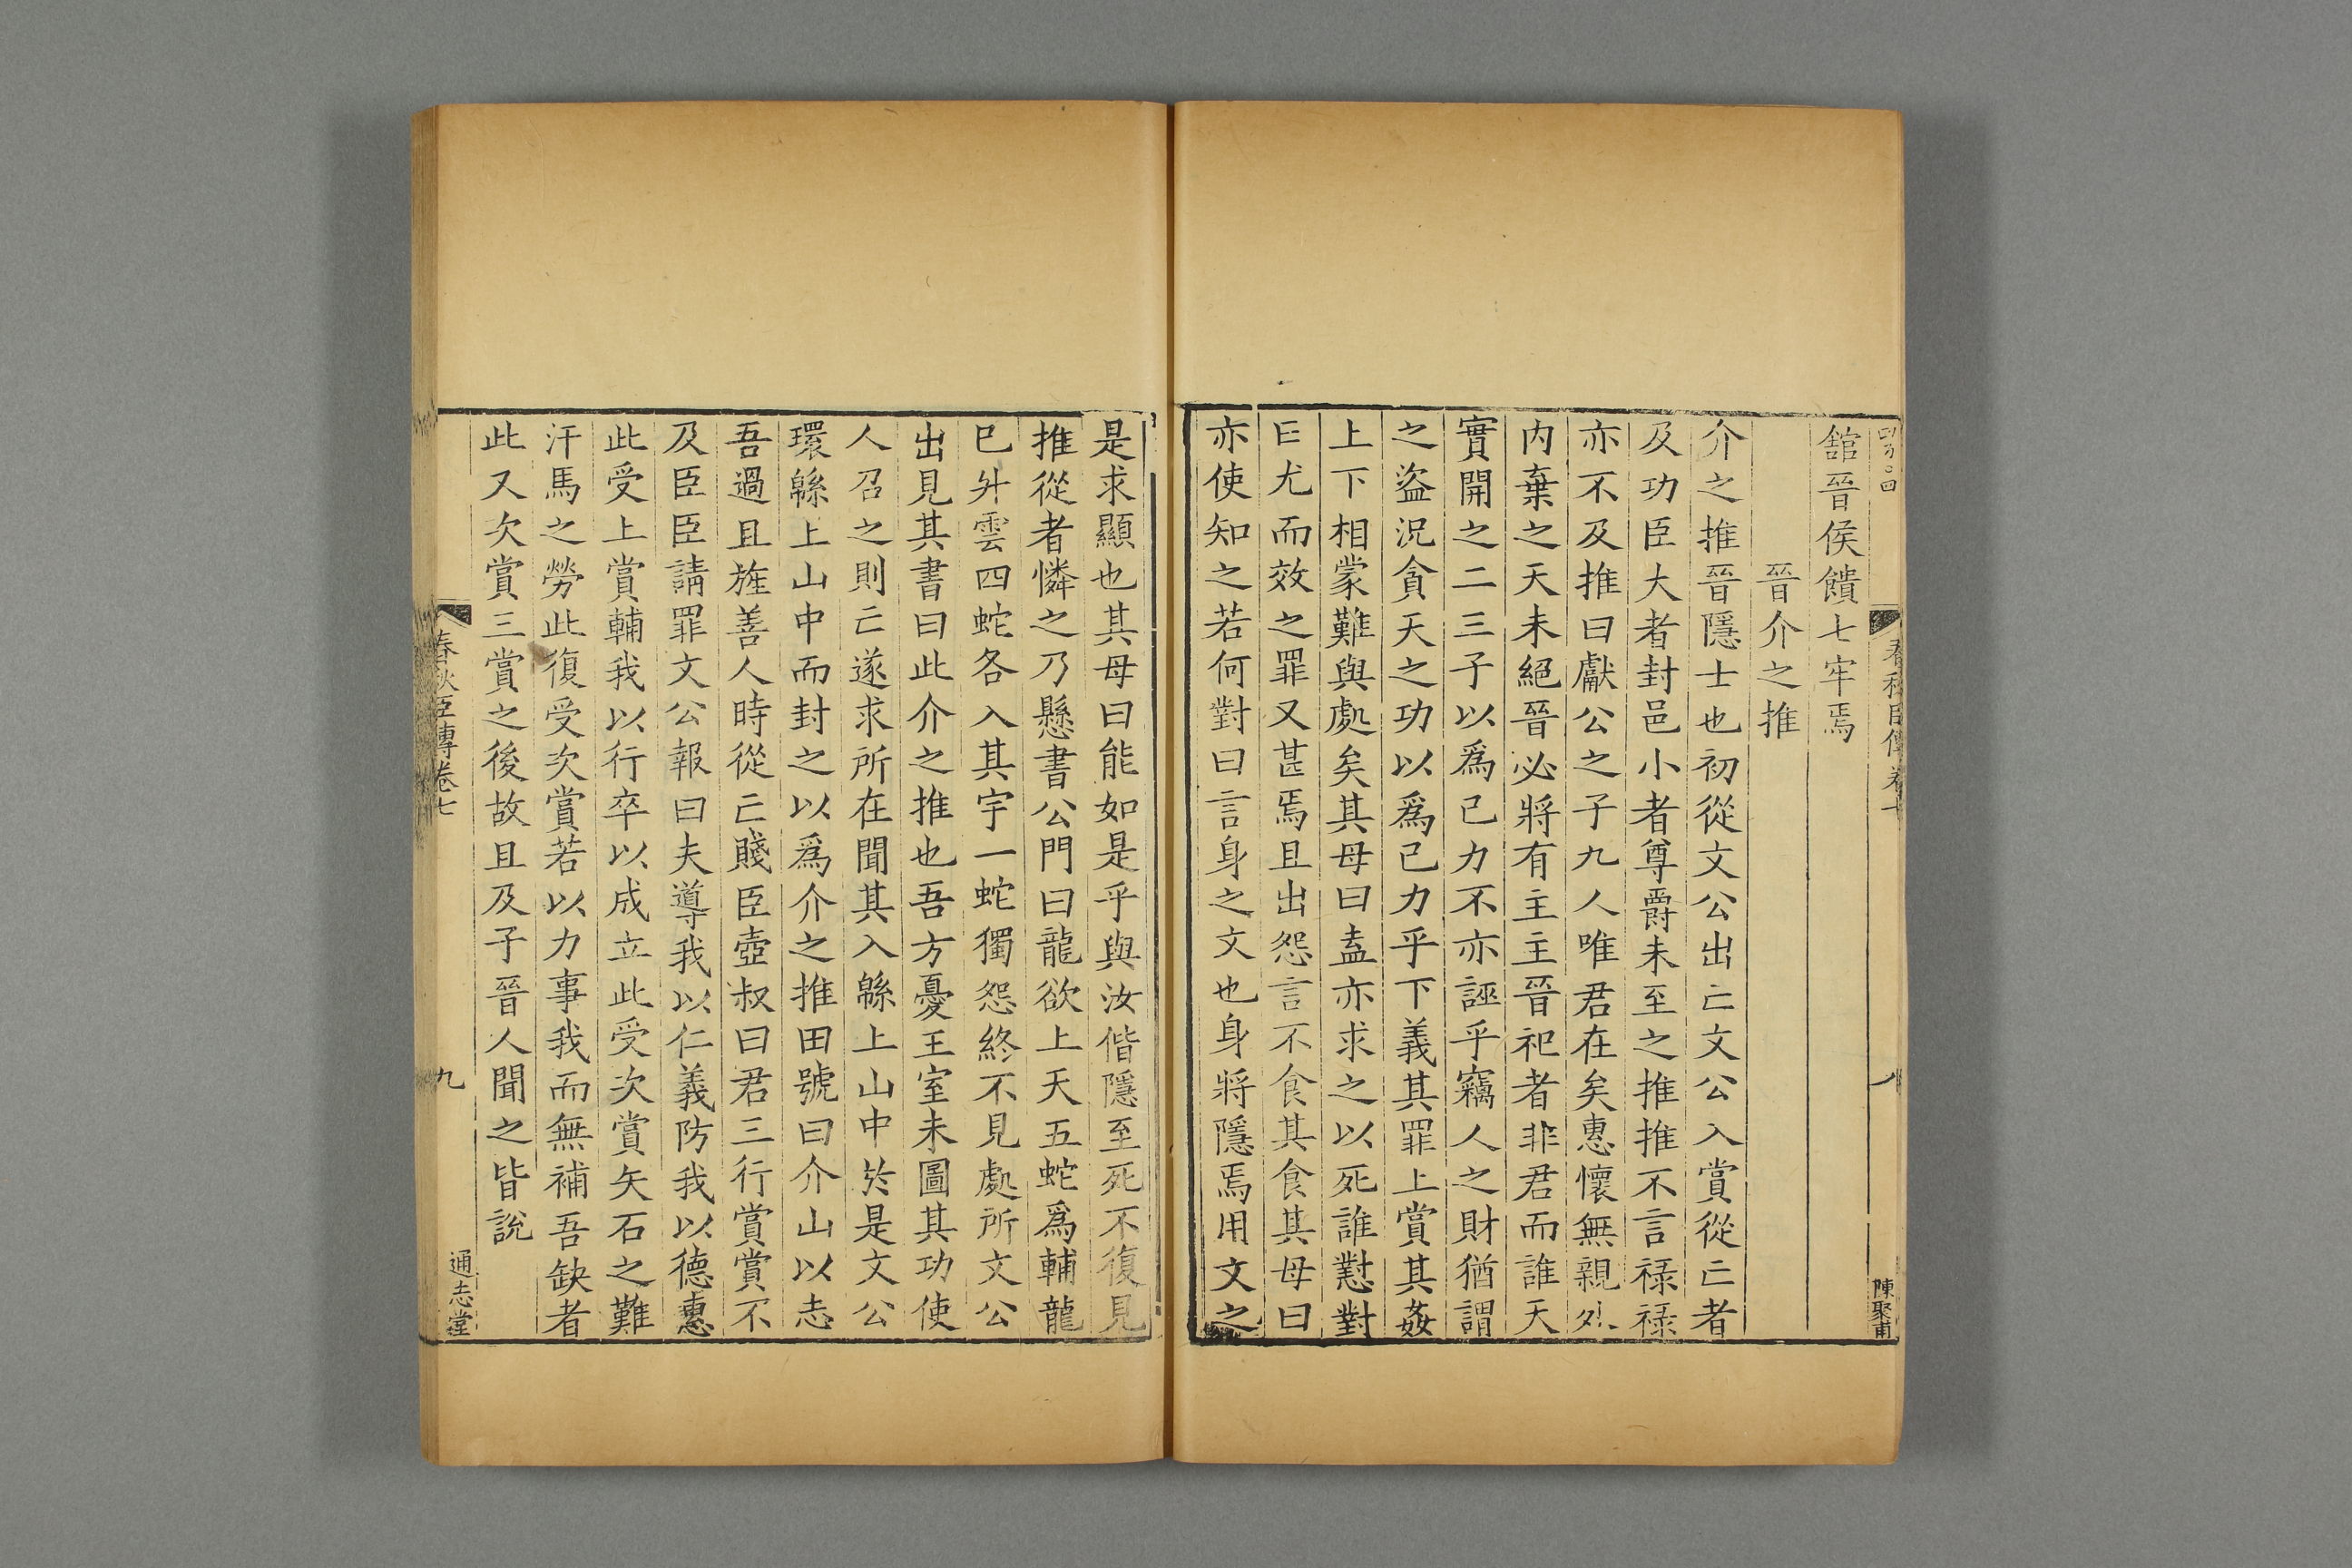 春秋臣傳卷七
八
陳聚甫
舘晉侯饋七牢焉
晉介之推
介之推晉隱士也初從文公出亡文公入賞從亡者
及功臣大者封邑小者尊爵未至之推推不言祿祿
亦不及推曰獻公之子九人唯君在矣惠懷無親外
内棄之天未絕晉必將有主主晉祀者非君而誰天
實開之二三子以爲己力不亦誣乎竊人之財猶謂
之盜況貪天之功以爲己力乎下義其罪上賞其姦
上下相蒙難與處矣其母曰盍亦求之以死誰懟對
曰尤而效之罪又甚焉且出怨言不食其食其母曰
亦使知之若何對曰言身之文也身將隱焉用文之
是求顯也其母曰能如是乎與汝偕隱至死不復見
推從者憐之乃懸書公門曰龍欲上天五蛇爲輔龍
已升雲四蛇各入其宇一蛇獨怨終不見處所文公
出見其書曰此介之推也吾方憂王室未圖其功使
人召之則亡遂求所在聞其入緜上山中於是文公
環緜上山中而封之以爲介之推田號曰介山以志
吾過且旌善人時從亡賤臣壺叔曰君三行賞賞不
及臣臣請罪文公報曰夫導我以仁義防我以德惠
此受上賞輔我以行卒以成立此受次賞矢石之難
汗馬之勞此復受次賞若以力事我而無補吾缺者
此又次賞三賞之後故且及子晉人聞之皆說
春秋臣傳卷七
九
通志堂